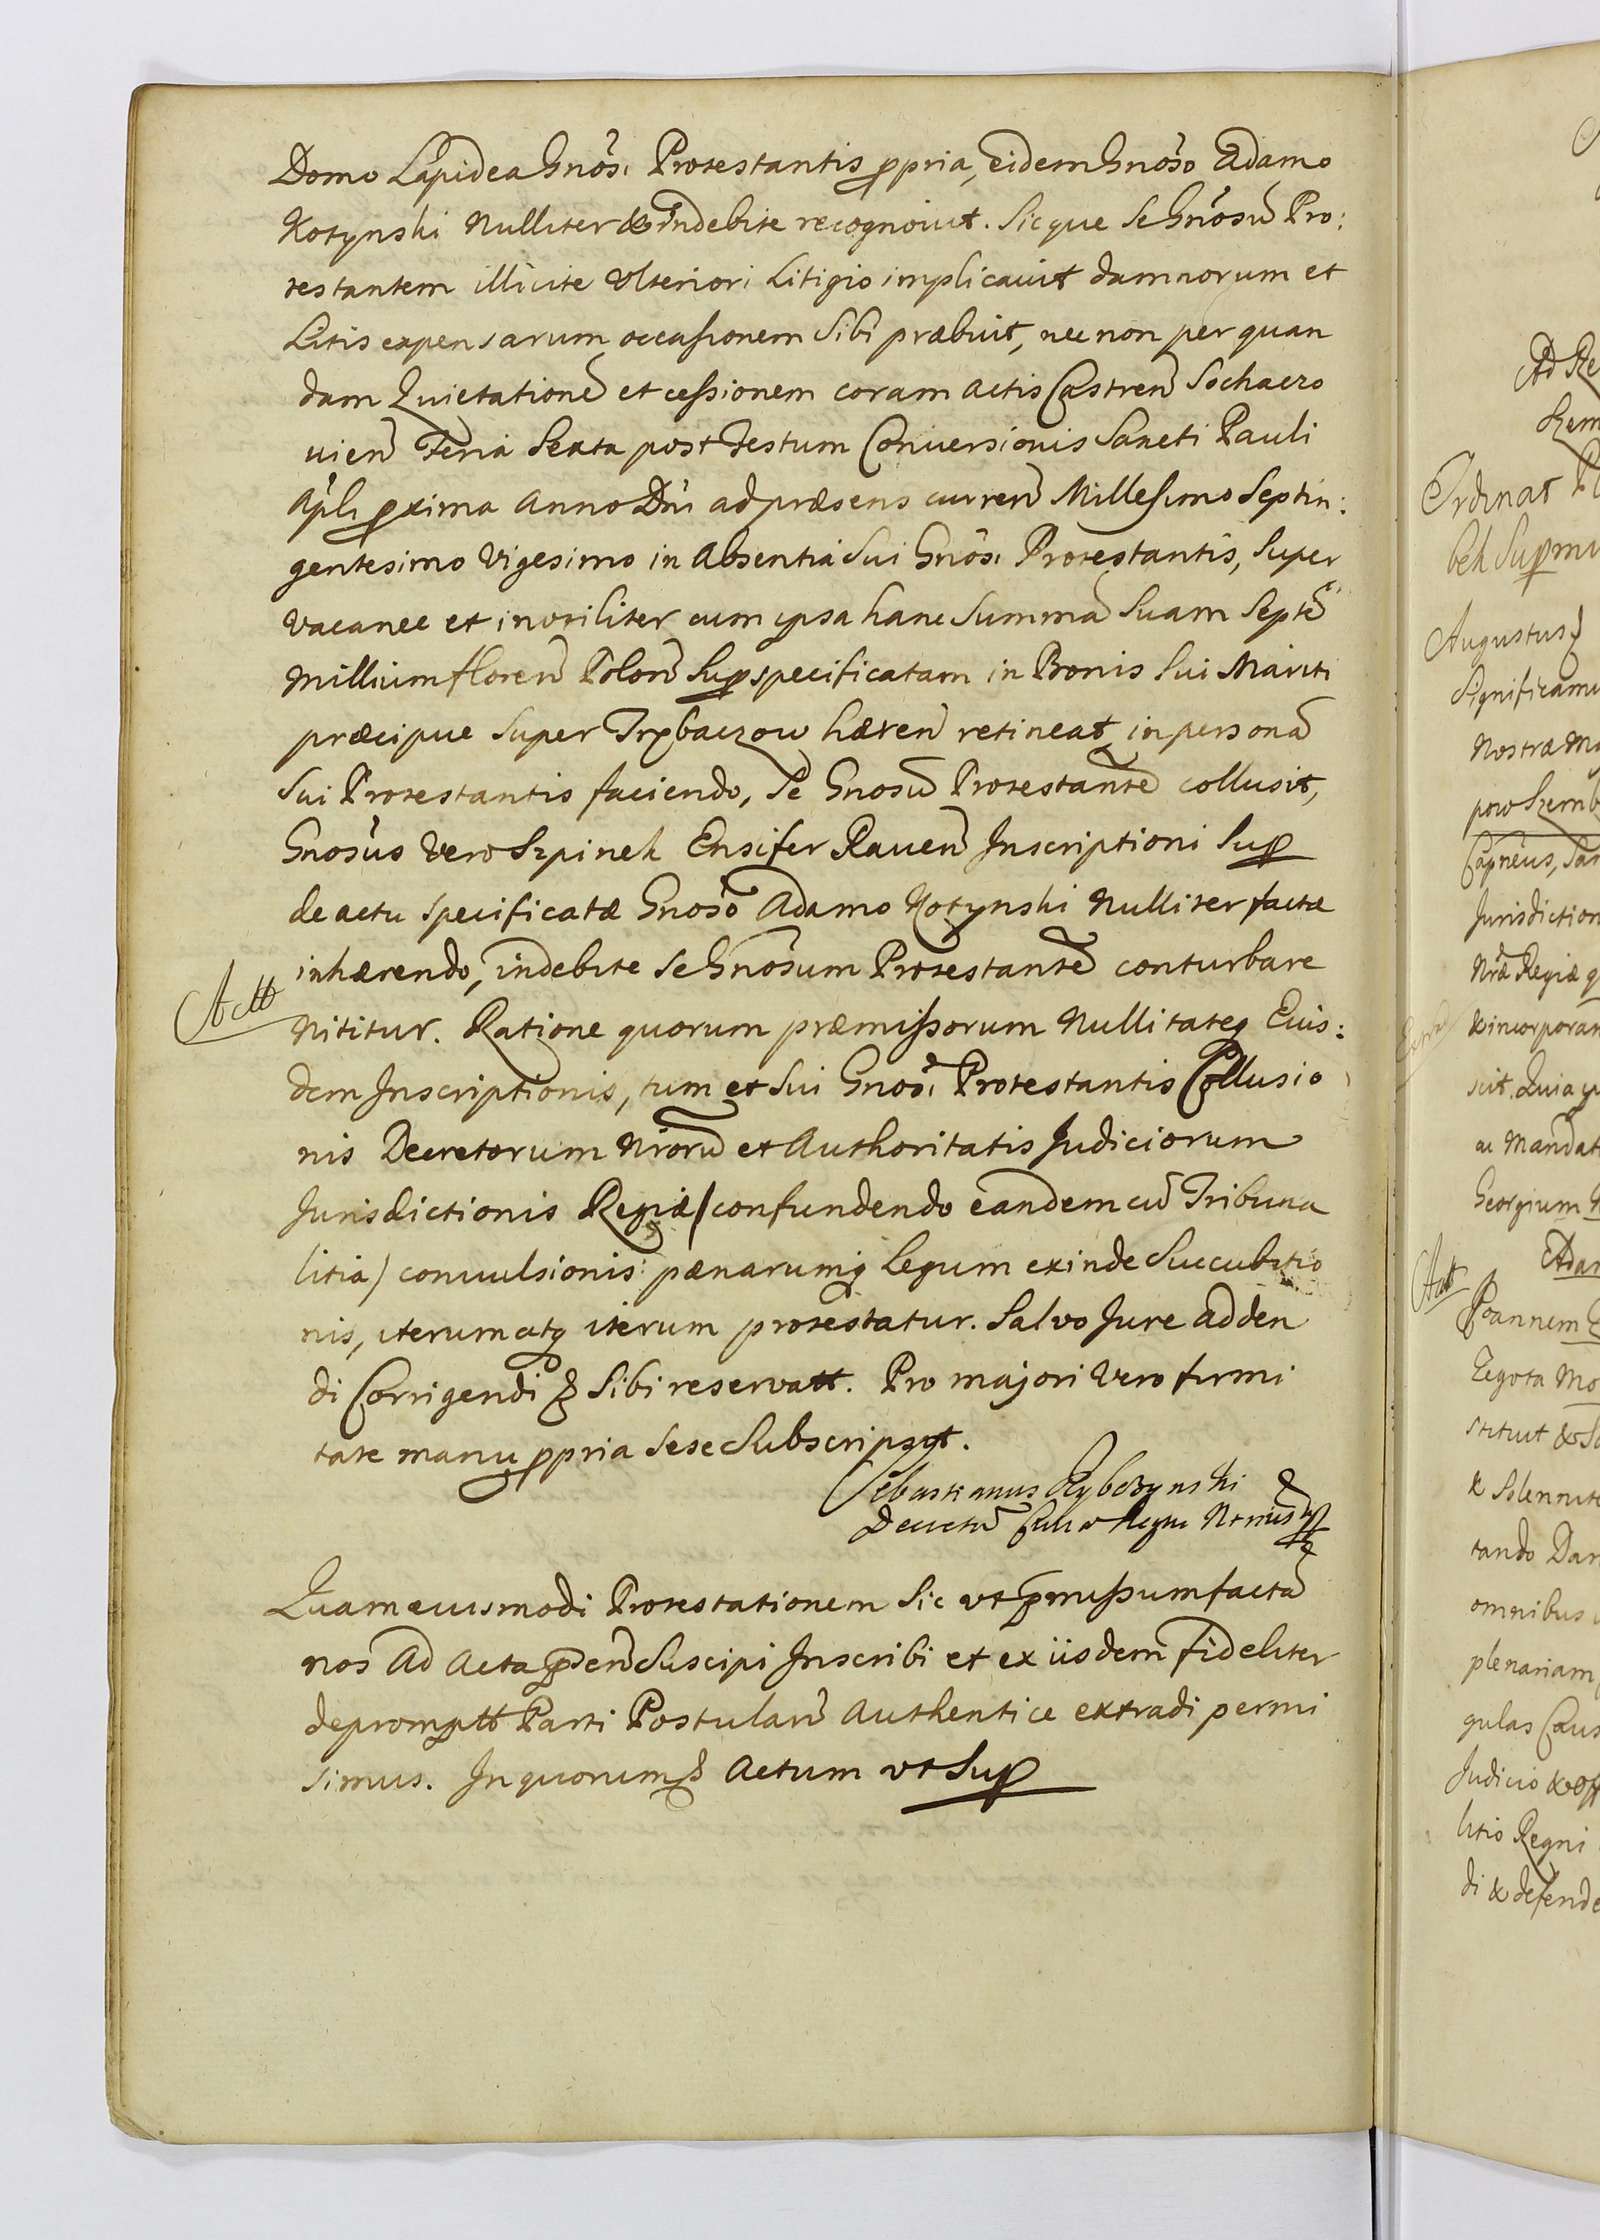 Domo Lapidea Gnosi Protestantis ppria, eidem Gnoso Adamo
Kotynski Nulliter & indebite recognovit. Sicque Se Gnosū Pro:
testantem illicite Ulteriori Litigio implicavit damnorum et
Litis expensarum occasionem Sibi præbuit, nec non per quan
dam Quietationē et cessionem coram actis Castreñ Sochaczo
vień Feria Sexta post Festum Conversionis Sancti Pauli
Apli pxima Anno Dni ad præsens curreñ Millesimo Septin:
gentesimo Vigesimo in Absentia Sui Gnosi Protestantis, Super
vacanee et inutiliter cum ipsa hanc Summā Suam Septē
Millium floreñ Poloñ Sup specificatam in Bonis Sui Mariti
præcipue Super Trębaczow hæreñ retineat, in personā
Sui Protestantis faciendo, Se Gnosū Protestantē collusit,
Gnosus Vero Szpinek Ensifer Raveñ Inscriptioni Sup
de actu specificatæ Gnoso Adamo Kotynski Nulliter factæ
inhærendo, indebite Se Gnosum Protestantē conturbare
Att
Nititur. Ratione quorum præmissorum Nullitateq Eius:
dem Inscriptionis, tum et Sui Gnosi Protestantis Collusio
nis Decretorum Nrorū et Authoritatis Judiciorum
Jurisdictionis Regiæ /confundendo eandem cū Tribuna
litia/ convulsionis pænarumq Legum exinde Succubitio
nis, iterum atq iterum protestatur. Salvo Jure adden
di Corrigendi & Sibi reservatt. Pro majori Vero firmi
tate manu ppria Sese Subscripsit.
Sebastianus Rybczynski
Decretū Regni Ntrius
Quam eiusmodi Protestationem Sic ut pmissum factā
nos Ad Acta pdeñ Suscipi Inscribi et ex iisdem fideliter
depromptt Parti Postulañ Authentice extradi permi
simus. In quorum & Actum ut Sup
Ad Re
Szem
Ordinat
bek Supmu
Augustus
Significamu
Nostræ Ma
pow Szemb
Capneus, Sa
Jurisdiction
Nræ Regiæ q
& incorporan
scit. Quia
ac Mandat
Georgium
Adam
Att
Joannem
Zegota Mo
stituit & So
& Solennite
tando Dar
omnibus
plenariam
gulas Caus
Judicio & Off
litio Regni
di & defende